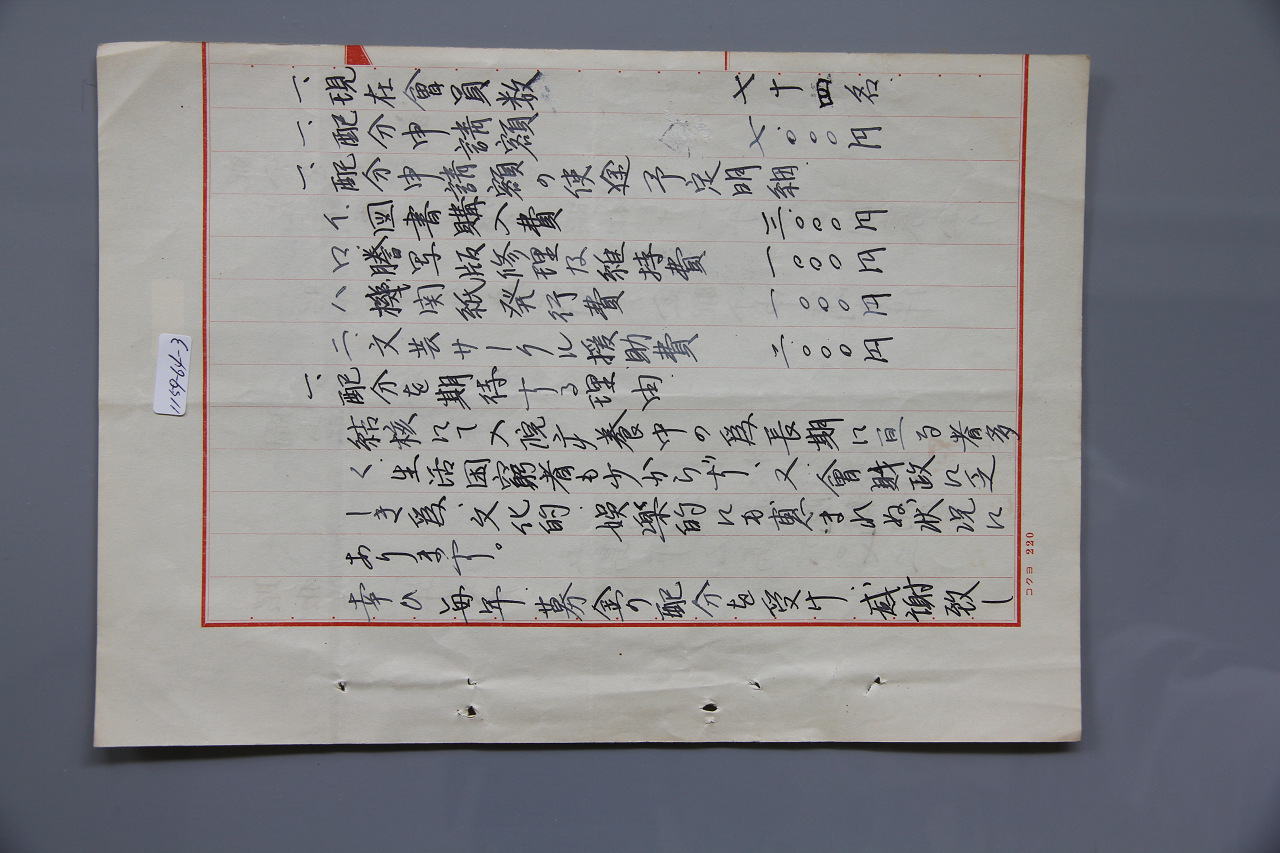 一、現在會員数 七十四名
一、配分申請額 七〇〇〇円
一、配分申請額の使途予定明細
イ、図書購入費 三〇〇〇円
ロ、謄写版修理及維持費 一〇〇〇円
ハ、機関紙発行費 一〇〇〇円
ニ、文芸サークル援助費 二〇〇〇円
一、配分を期待する理由
結核にて入院療養中の為長期に亘る者多
く生活困窮者も少からず、又會財政に乏
しき為、文化的娯楽的にも恵まれぬ状況に
あります。
幸ひ毎年募金の配分を受け、感謝致し
コクヨ 220
1159-64-3